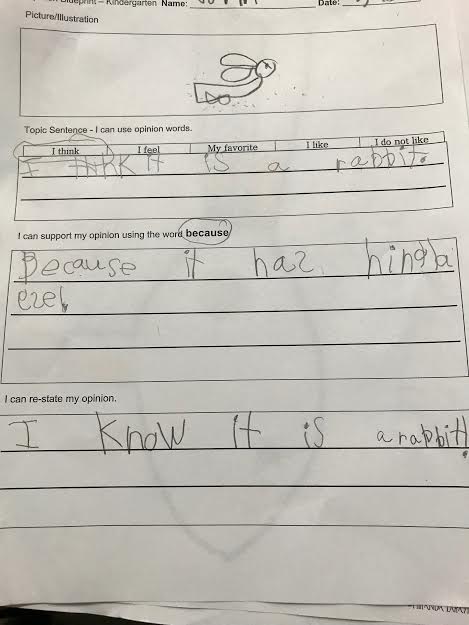 Blueprint – Kindergarten Name:
Date:
Picture/Illustration
Topic Sentence - I can use opinion words.
I think I feel My favorite I like I do not like
I thkk it is a rabbit.
I can support my opinion using the word because
Because it has hingla
ezel
I can re-state my opinion.
I know it is a rabbit!